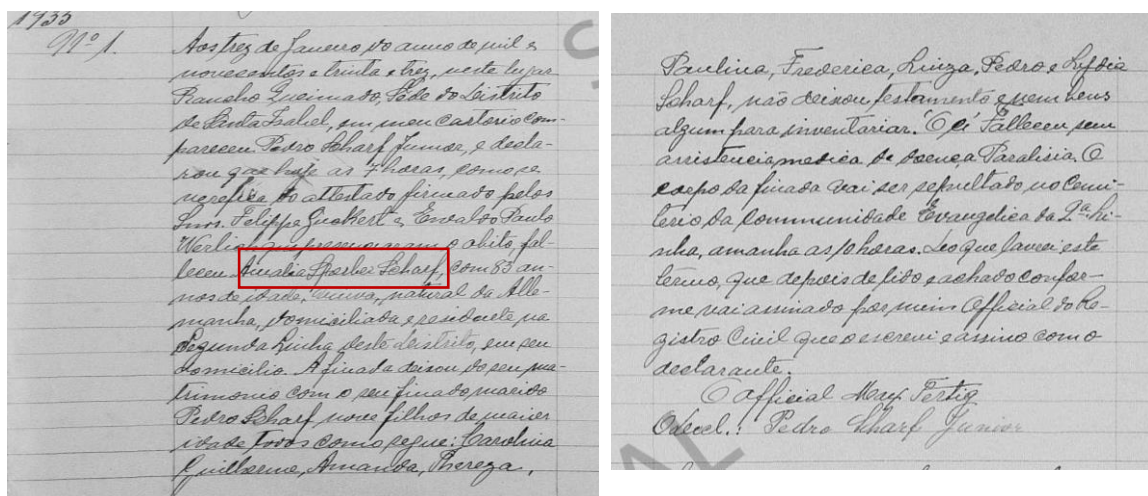 1933
Nº 1.
Aos trez de Janeiro do anno de mil e
novecentos e trinta e trez, neste lugar
Rancho Queimado, Séde do Districto
de Santa Isabel, em meu cartorio com-
pareceu Pedro Scharf Junior, e decla-
rou que hoje as 7 horas, como se
verefica do attestado firmado pelos
Snrs. Felippe Guckert e Envaldo Paulo
Werlich que presenciaram o obito, fal-
leceu Amalia Sperber Scharf, com 83 an-
nos de idade, viuva, natural da Alle-
manha, domiciliada e residente na
Segunda Linha deste districto, em seu
domicilio. A finada deixou do seu ma-
trimonio com o seu finado marido
Pedro Scharf nove filhos de maior
idade todos como segue: Carolina
Guilherme, Amanda, Thereza,
Paulina, Frederica, Luiza, Pedro e Lydia
Scharf, não deixou testamento e nem bens
algum para inventariar. Falleceu sem
assistencia medica de doença Paralisia. O
corpo da finada vai ser sepultado no Cemi-
terio da Communidade Evangelica da 2ª Li-
nha, amanha as 10 horas. Do que lavrei este
termo, que depois de lido e achado confor-
me vai assinado por mim Official do Re-
gistro Civil que o escrevi e assino com o
declarante.
O Official Max Tertig
O decl.: Pedro Scharf Junior